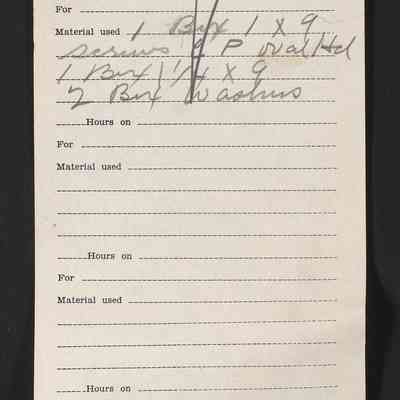 For
Material used 1 Box 1 X 9
screws P oval Hd
1 Box 1 1/4 X 9
2 Box Washers
Hours on
For
Material used
Hours on
For
Material used
Hours on